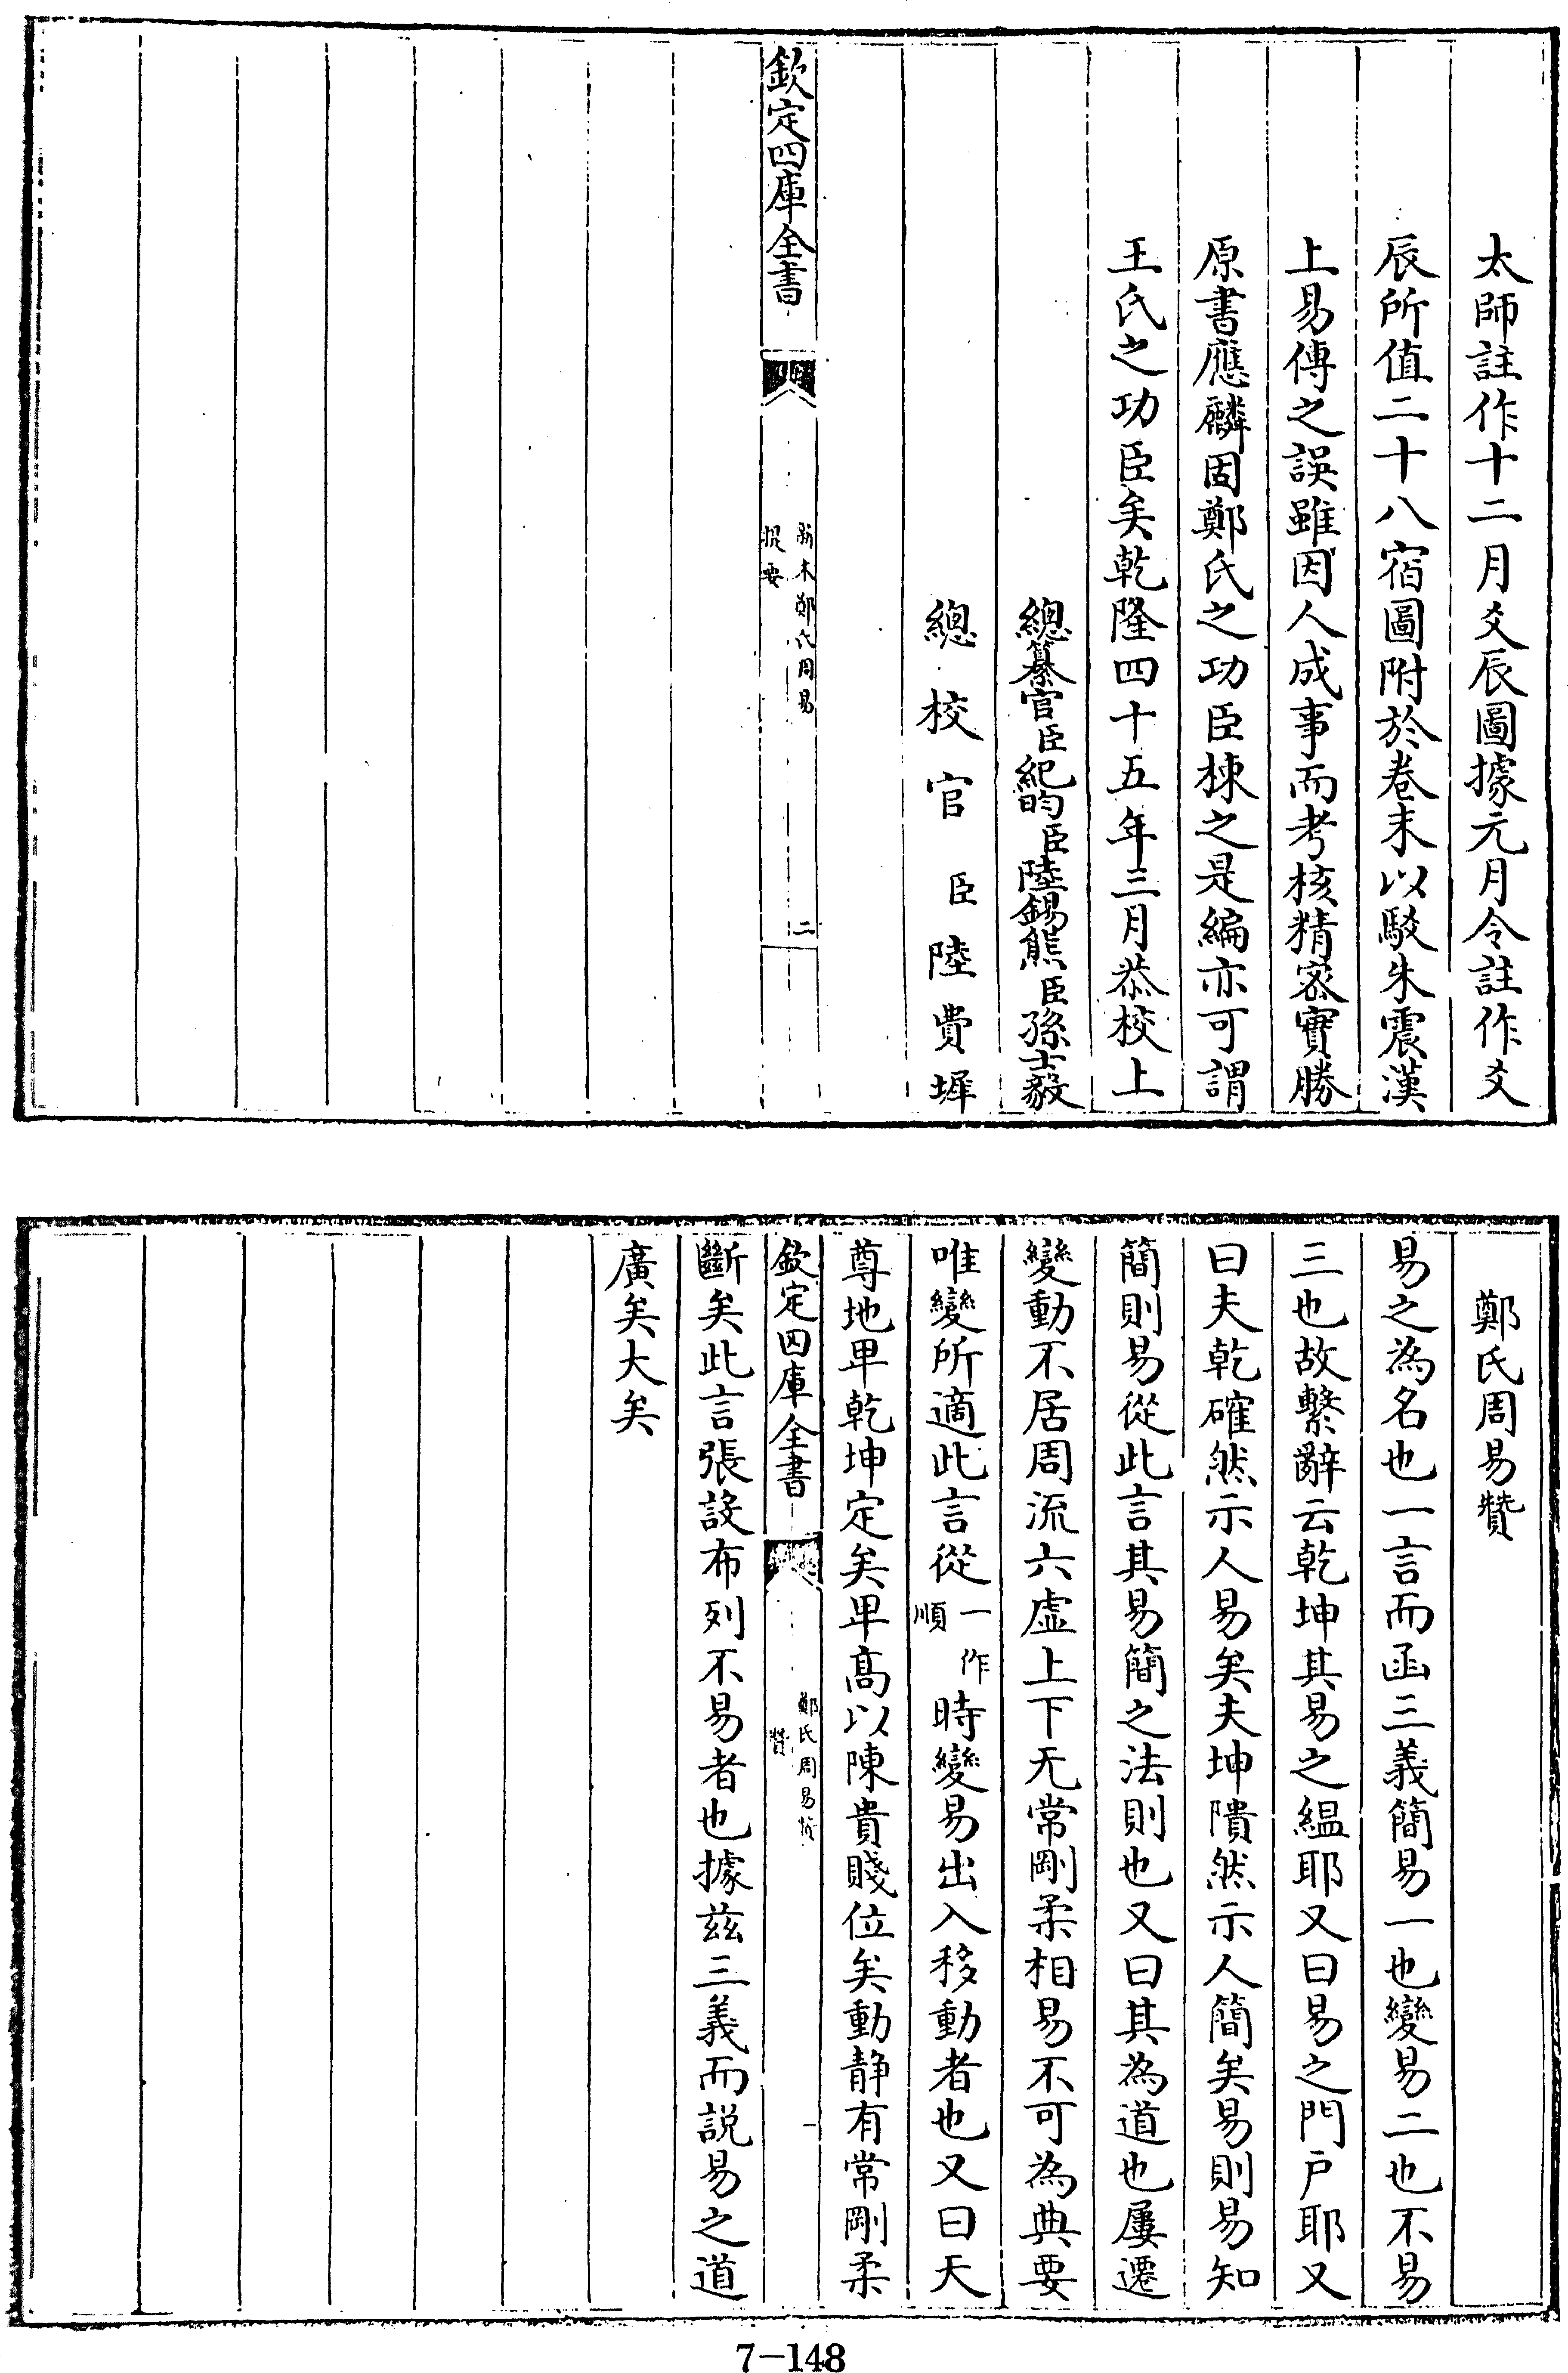 太師註作十二月爻辰圖據元月令註作爻
辰所值二十八宿圖附於卷末以駁朱震漢
上易傳之誤雖因人成事而考核精宻實勝
原書應麟固鄭氏之功臣棟之是編亦可謂
王氏之功臣矣乾隆四十五年三月恭校上
總纂官臣紀昀臣陸錫熊臣孫士毅
總校官臣陸費墀
欽定四庫全書
新本鄭氏周易
提要
二
鄭氏周易贊
易之為名也一言而函三義簡易一也變易二也不易
三也故繫辭云乾坤其易之緼耶又曰易之門户耶又
曰夫乾確然示人易矣夫坤隤然示人簡矣易則易知
簡則易從此言其易簡之法則也又曰其為道也屢遷
變動不居周流六虛上下无常剛柔相易不可為典要
唯變所適此言從一作順時變易出入移動者也又曰天
尊地卑乾坤定矣卑高以陳貴賤位矣動静有常剛柔
欽定四庫全書
鄭氏周易贊
贊
一
斷矣此言張設布列不易者也據兹三義而説易之道
廣矣大矣
7-148